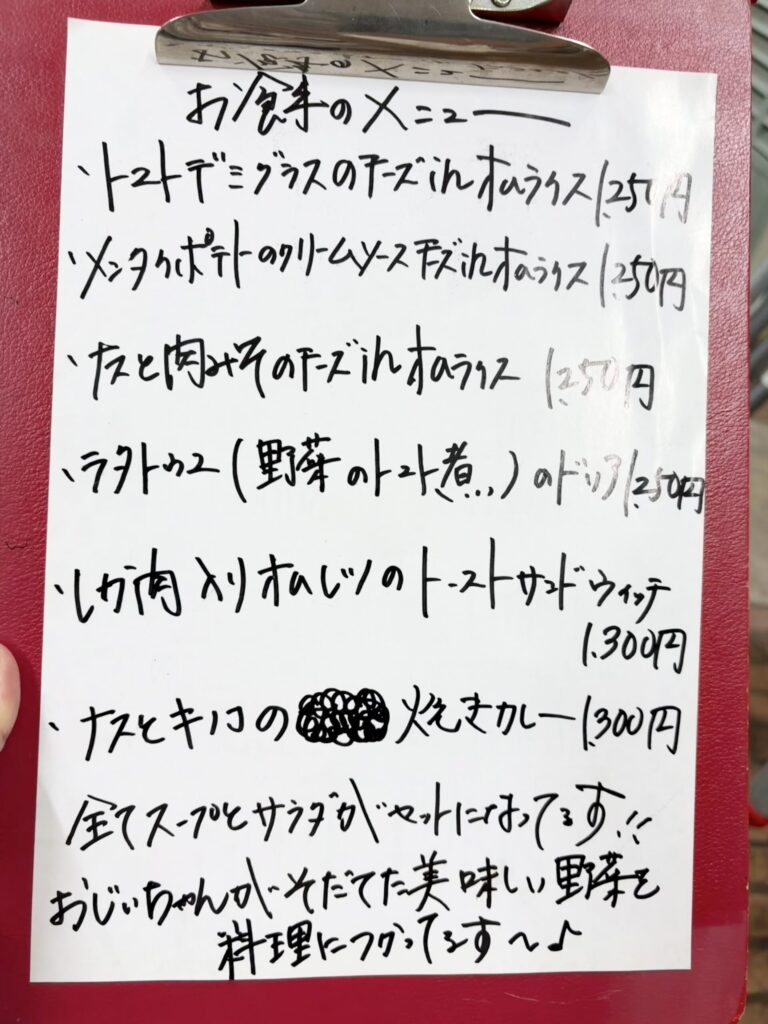 お食事のメニュー
・トマトデミグラスのチーズinオムライス 1,250円
・メンタイポテトーのクリームソースチーズinオムライス 1,250円
・ナスと肉みそのチーズinオムライス 1,250円
・ラタトゥユ(野菜のトマト煮)のドリア 1,250円
・しか肉入りオムレツのトーストサンドウィッチ
1,300円
・ナスとキノコの 焼きカレー 1,300円
全てスープとサラダがセットになってます!!
おじいちゃんがそだてた美味しい野菜を
料理につかってます〜♪